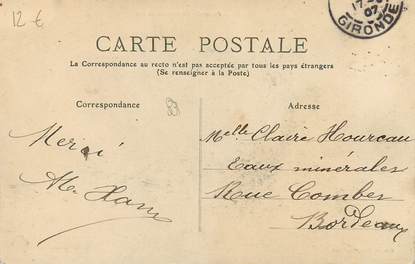 12 €
17
07
GIRONDE
CARTE POSTALE
La Correspondance au recto n'est pas acceptée par tous les pays étrangers
(Se renseigner à la Poste)
Correspondance
33
Adresse
Merci
Melle Claire Hourcau
Eaux minérales
Rue Combes
Bordeaux